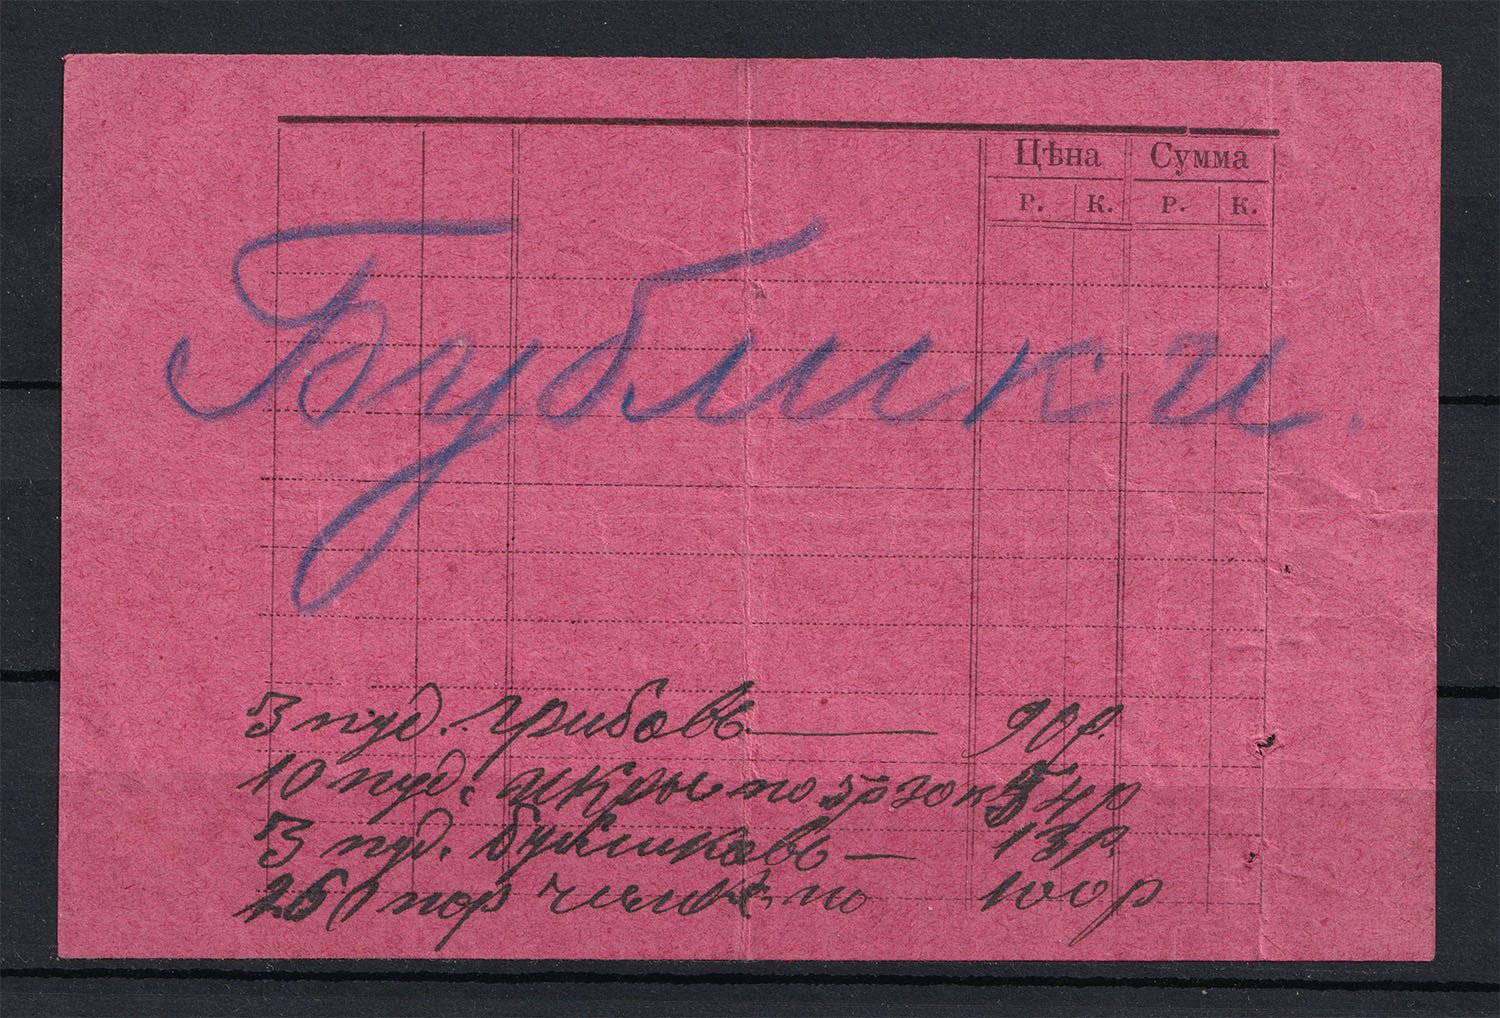 Цѣна Сумма
Р. К. Р. К.
Бублики.
3 пуд. грибовъ — 90р.
10 пуд. икры по 5р 40к 54р
3 пуд. бубликовъ — 13р.
пор по 100р